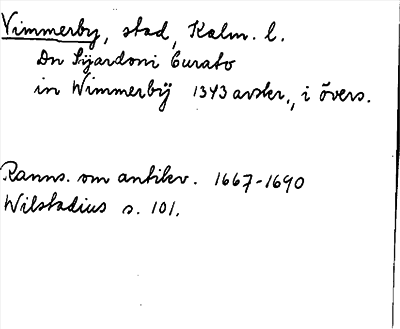 Vimmerby, stad, Kalm. l.
Dn Sijardoni Curato
in Wimmerbÿ 1343 avskr., i övers.
Ranns. om antikv. 1667-1690
Wilstadius s. 101.